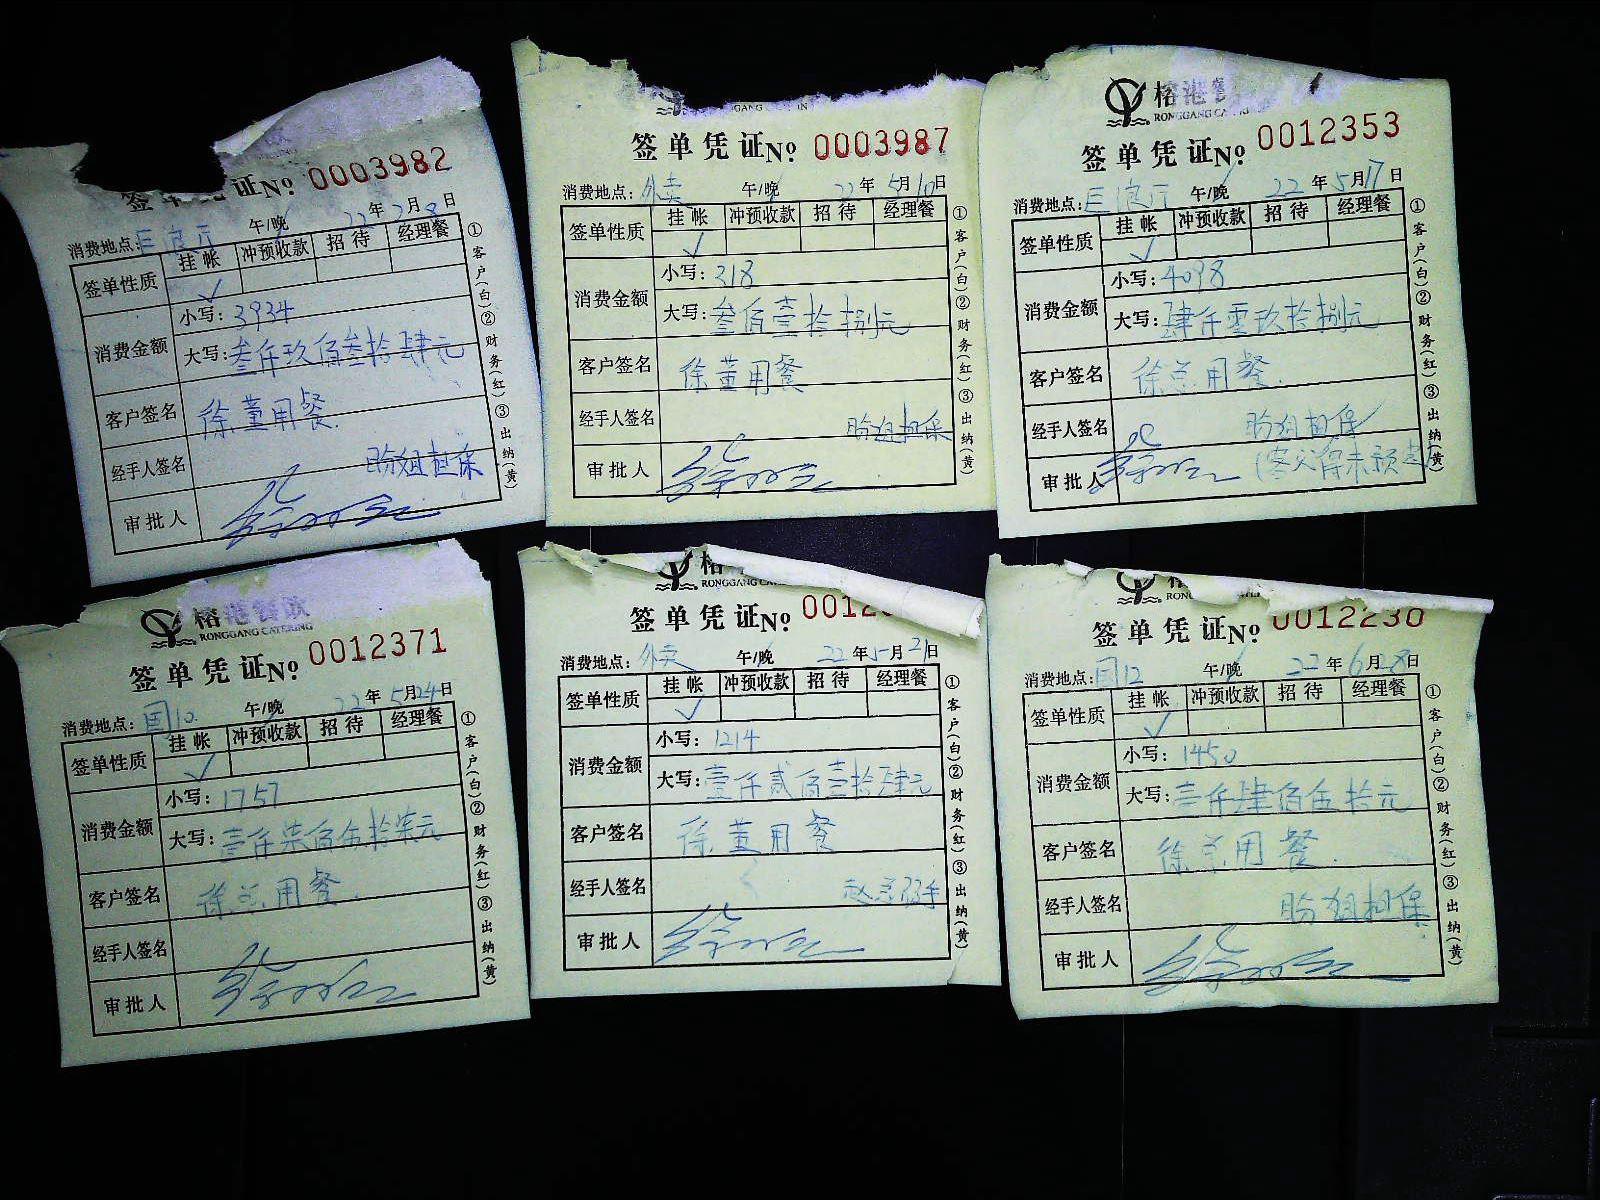 证No. 0003982
消费地点: 午/晚 22年2月8日
签单性质 挂帐 冲预收款 招待 经理餐
✓
消费金额 小写: 3934
大写: 叁仟玖佰叁拾肆元
客户签名 徐董用餐.
经手人签名 盼姐担保
审批人
①客户(白)②财务(红)③出纳(黄)
签单凭证No. 0003987
消费地点: 外卖 午/晚 22年5月10日
签单性质 挂帐 冲预收款 招待 经理餐
✓
消费金额 小写: 318
大写: 叁佰壹拾捌元
客户签名 徐董用餐
经手人签名 盼姐担保
审批人
①客户(白)②财务(红)③出纳(黄)
榕港餐
RONGGANG
签单凭证No. 0012353
消费地点: 午/晚 22年5月17日
签单性质 挂帐 冲预收款 招待 经理餐
✓
消费金额 小写: 4098
大写: 肆仟零玖拾捌元
客户签名 徐总用餐.
经手人签名 盼姐担保
审批人
①客户(白)②财务(红)③出纳(黄)
榕港餐饮
RONGGANG CATERING
签单凭证No. 0012371
消费地点: 国10 午/晚 22年5月24日
签单性质 挂帐 冲预收款 招待 经理餐
✓
消费金额 小写: 1757
大写: 壹仟柒佰伍拾柒元
客户签名 徐总用餐.
经手人签名
审批人
①客户(白)②财务(红)③出纳(黄)
RONGGANG
签单凭证No. 0012
消费地点: 外卖 午/晚 22年5月21日
签单性质 挂帐 冲预收款 招待 经理餐
✓
消费金额 小写: 1214
大写: 壹仟贰佰壹拾肆元
客户签名 徐董用餐
经手人签名
审批人
①客户(白)②财务(红)③出纳(黄)
签单凭证No. 0012230
消费地点: 国12 午/晚 22年6月28日
签单性质 挂帐 冲预收款 招待 经理餐
✓
消费金额 小写: 1450
大写: 壹仟肆佰伍拾元
客户签名 徐总用餐.
经手人签名 盼姐担保
审批人
①客户(白)②财务(红)③出纳(黄)